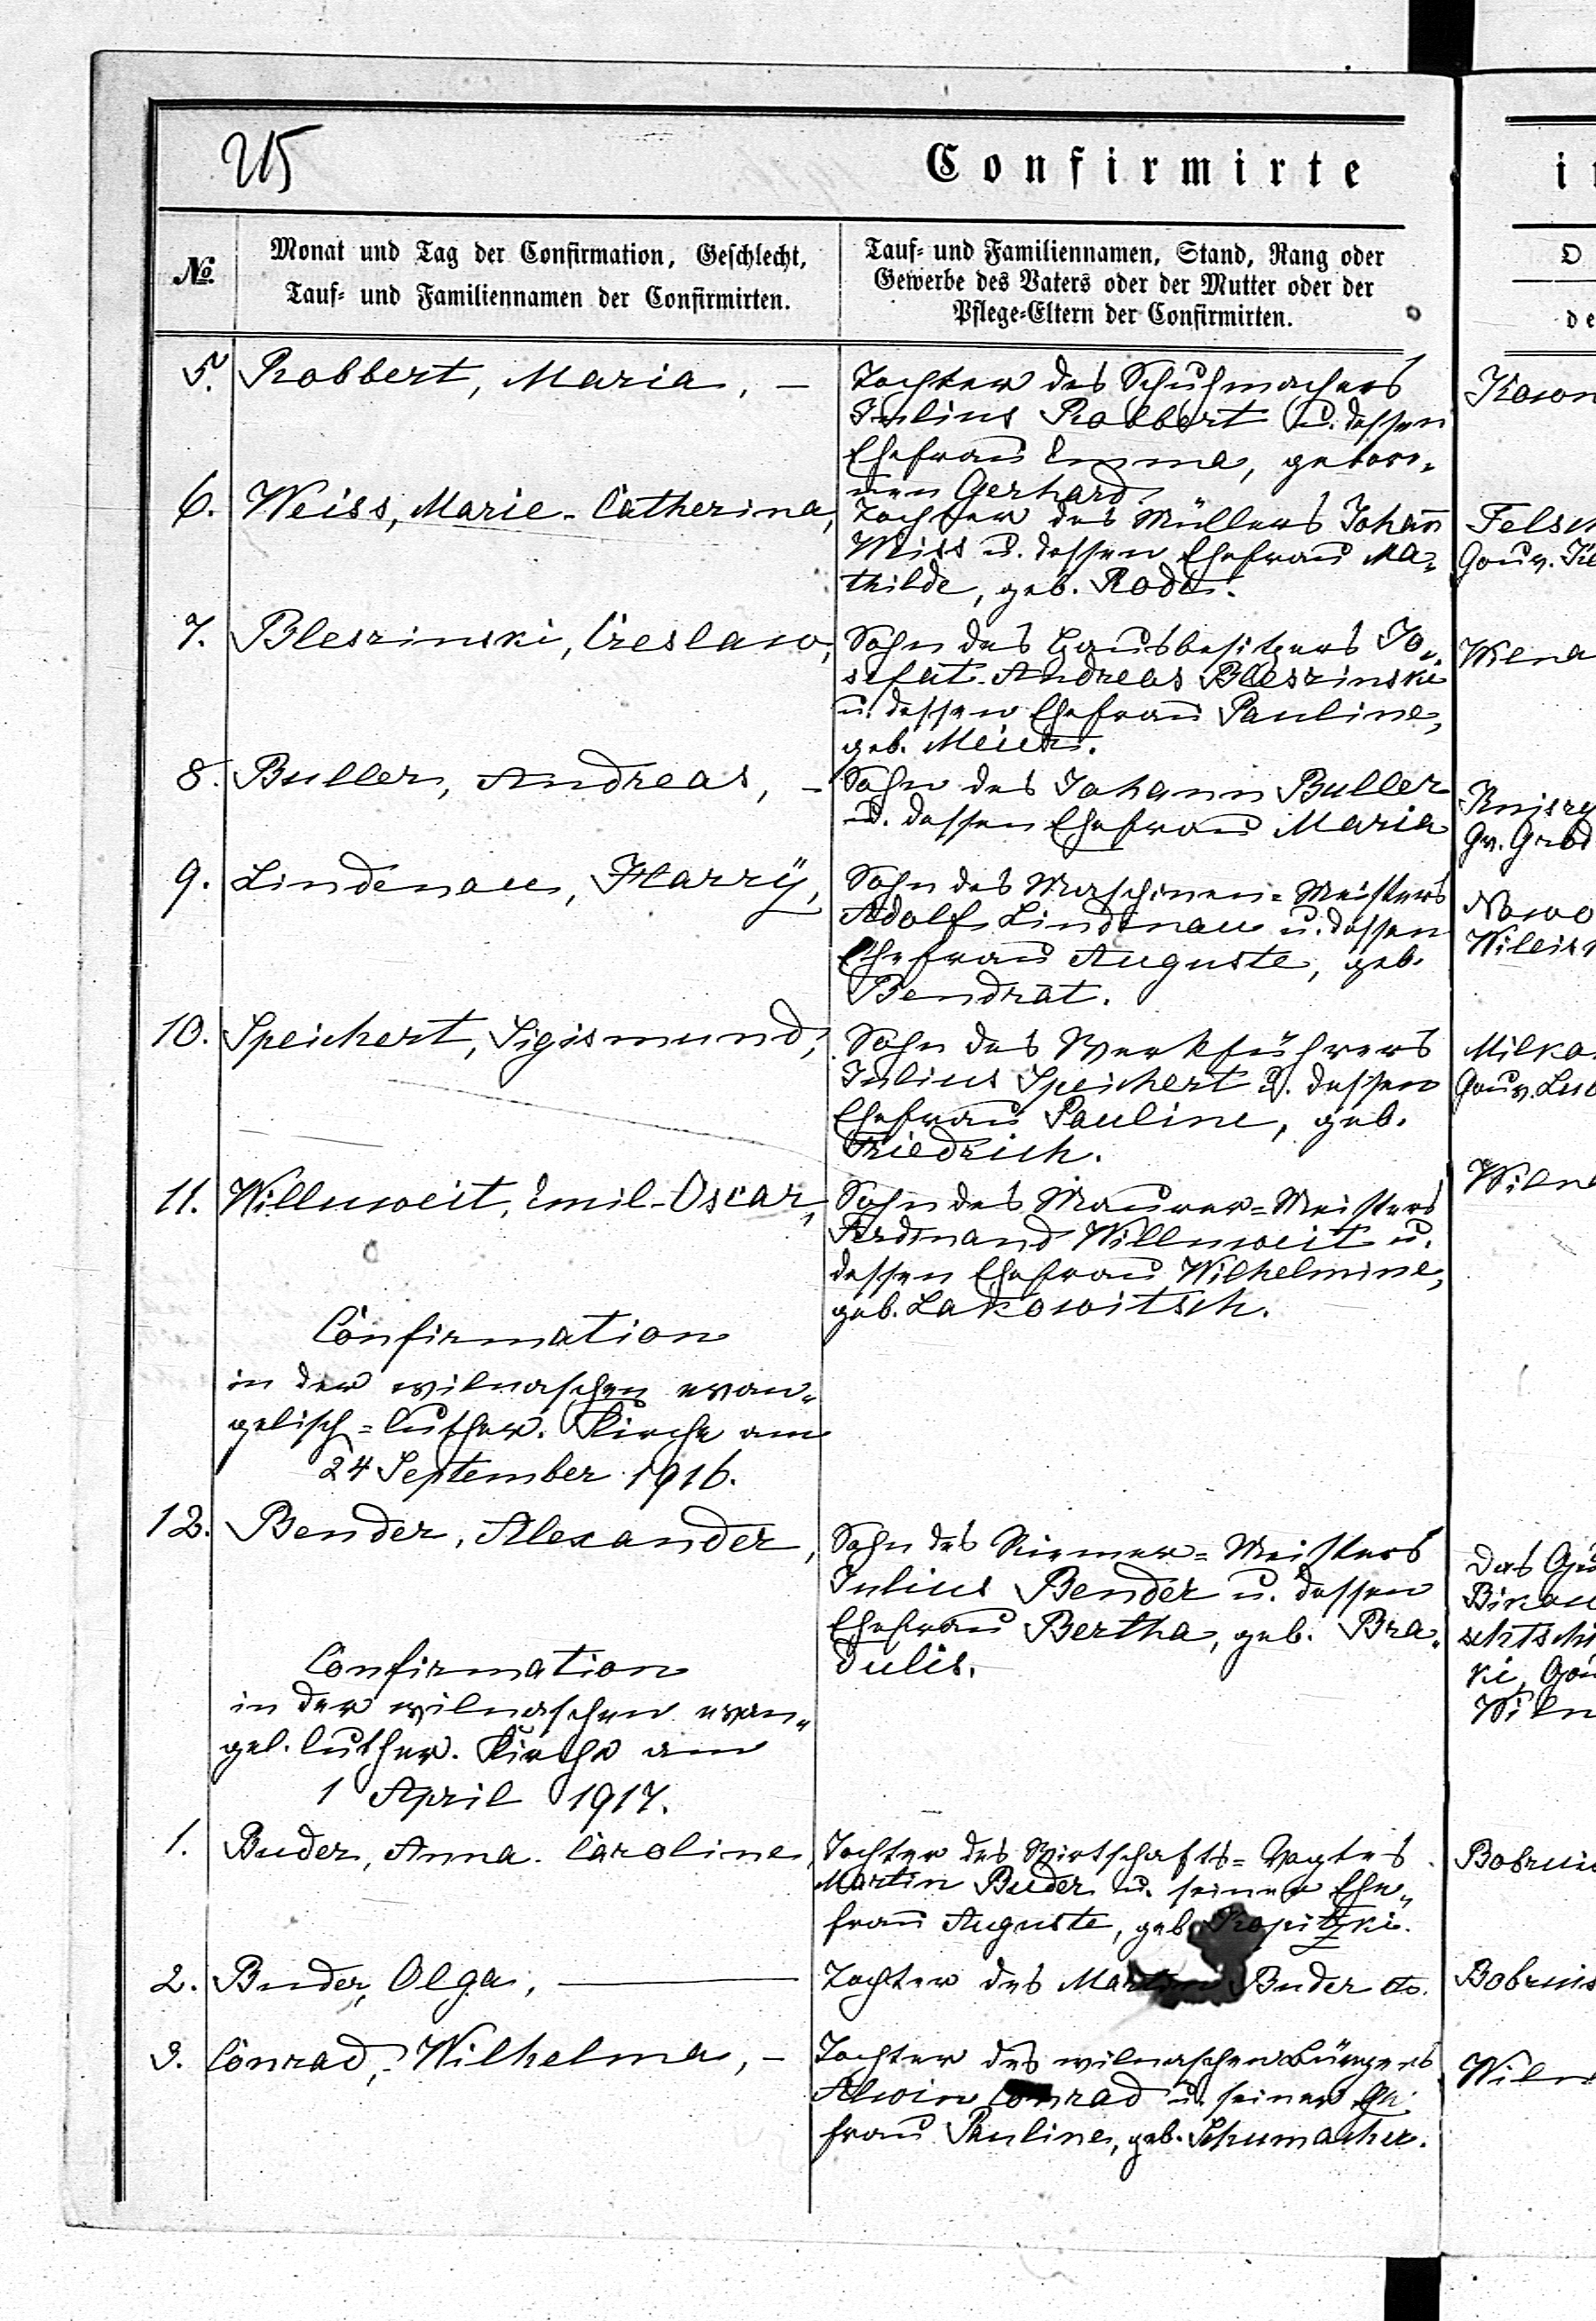 215
Confirmirte
№
Monat und Tag der Confirmation, Geschlecht,
Tauf- und Familiennamen der Confirmirten.
Tauf- und Familiennamen, Stand, Rang oder
Gewerbe des Vaters oder der Mutter oder der
Pflege-Eltern der Confirmirten.
5. Robbert, Maria, —
Tochter des Schuhmachers
Julius Robbert u. dessen
Ehefrau Emma, gebore-
nen Gerhard.
Kown
6. Weiss, Marie-Catherina,
Tochter des Müllers Johann
Weiss u. dessen Ehefrau Ma-
thilde, geb. Rode.
Felsch
Gouv. Ko
7. Bleszinski, Czeslaw,
Sohn des Hausbesitzers Jo-
sefat-Andreas Bleszinski
u. dessen Ehefrau Pauline,
geb. Meier.
Wilna
8. Buller, Andreas, —
Sohn des Johann Buller
u. dessen Ehefrau Maria
Kniszy
Gv. Grod
9. Lindenau, Harrÿ,
Sohn des Maschinen-Meisters
Adolf Lindenau u. dessen
Ehefrau Auguste, geb.
Bendrat.
Nowo
Wileisk
10. Speichert, Sigismund,
Sohn des Werkführers
Julius Speichert u. dessen
Ehefrau Pauline, geb.
Friedrich.
Milka
Gouv. Lub
11. Willuweit, Emil-Oscar,
Sohn des Maurer-Meisters
Ferdinand Willuweit u.
dessen Ehefrau Wilhelmine,
geb. Lakowitsch.
Wilna
Confirmation
in der wilnaschen evan-
gelisch-luther. Kirche am
24 September 1916.
12. Bender, Alexander,
Sohn des Riemer-Meisters
Julius Bender u. dessen
Ehefrau Bertha, geb. Bra-
dulis.
Das Gu
Bikau
schtschi
ki, Gou
Wiln
Confirmation
in der wilnaschen evan-
gel. luther. Kirche am
1 April 1917.
1. Buder, Anna-Caroline,
Tochter des Wirtschafts-Vogtes
Martin Buder u. seiner Ehe-
frau Auguste, geb. Kropitzki.
Bobruis
2. Buder, Olga, —
Tochter des Martin Buder etc.
Bobruis
3. Conrad, Wilhelma, —
Tochter des wilnaschen Bürgers
Alwin Conrad u. seiner Ehe-
frau Pauline, geb. Schumacher.
Wiln